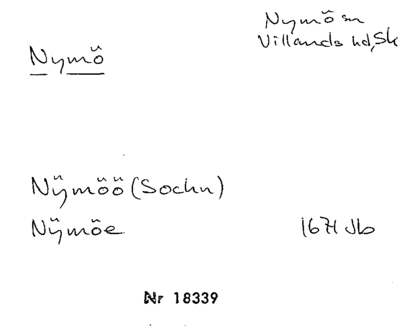 Nymö
Nymö sn
Villands hd, Sk
Nÿmöö (Sochn)
Nÿmöe 1671 Jb
Nr 18339